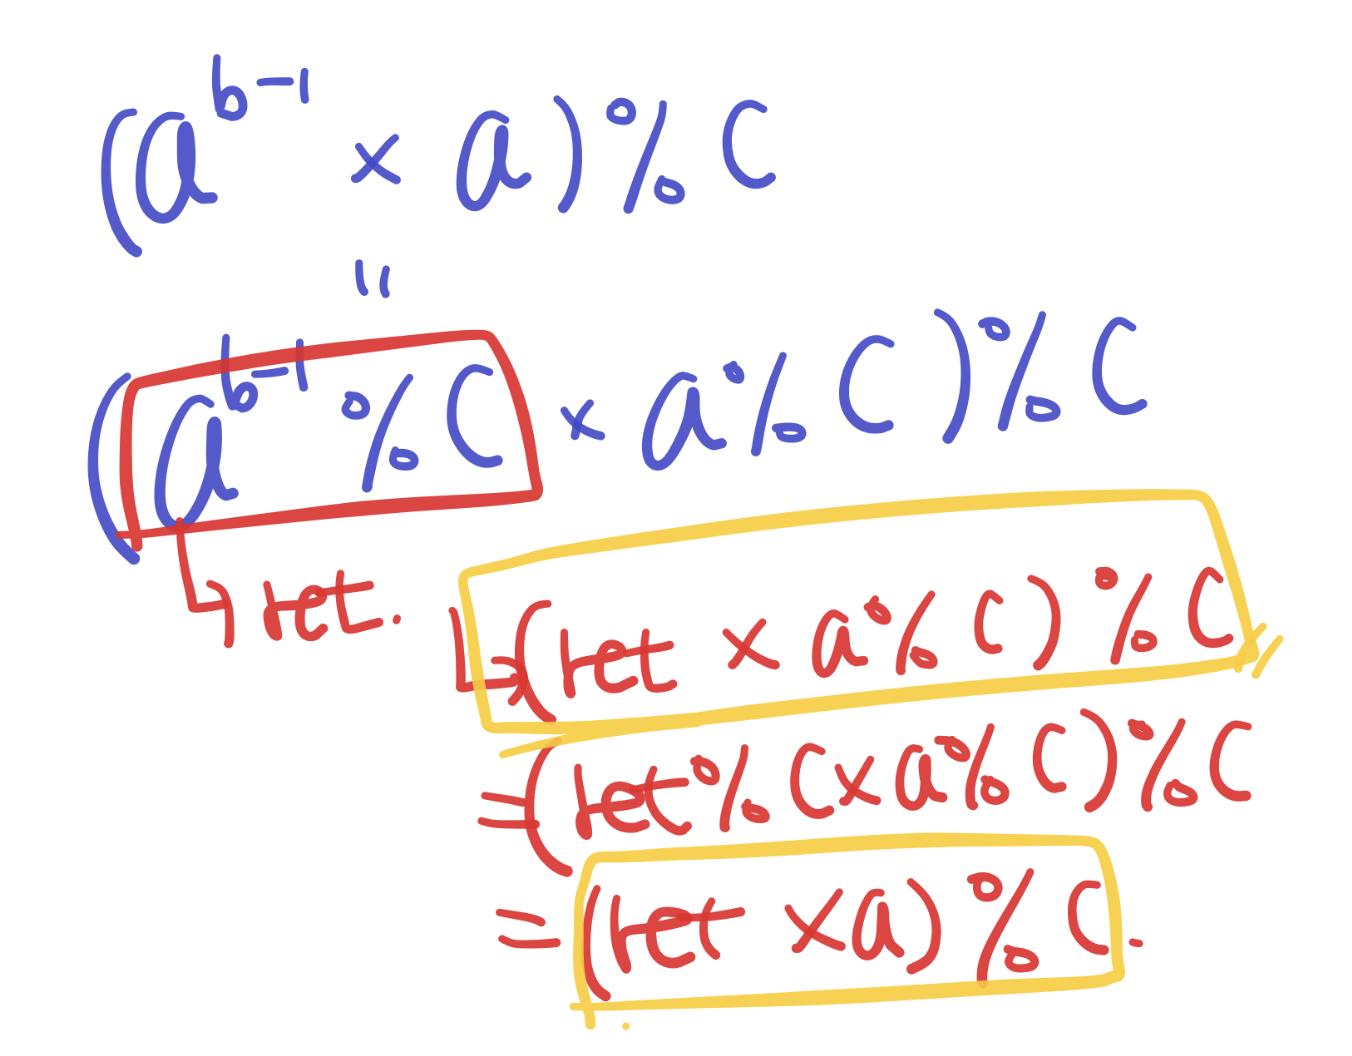 (a^{b-1} × a) % C
=
(a^{b-1} % C × a % C) % C
↳ ret.
↳ (ret × a % C) % C
= (ret % C × a % C) % C
= (ret × a) % C.